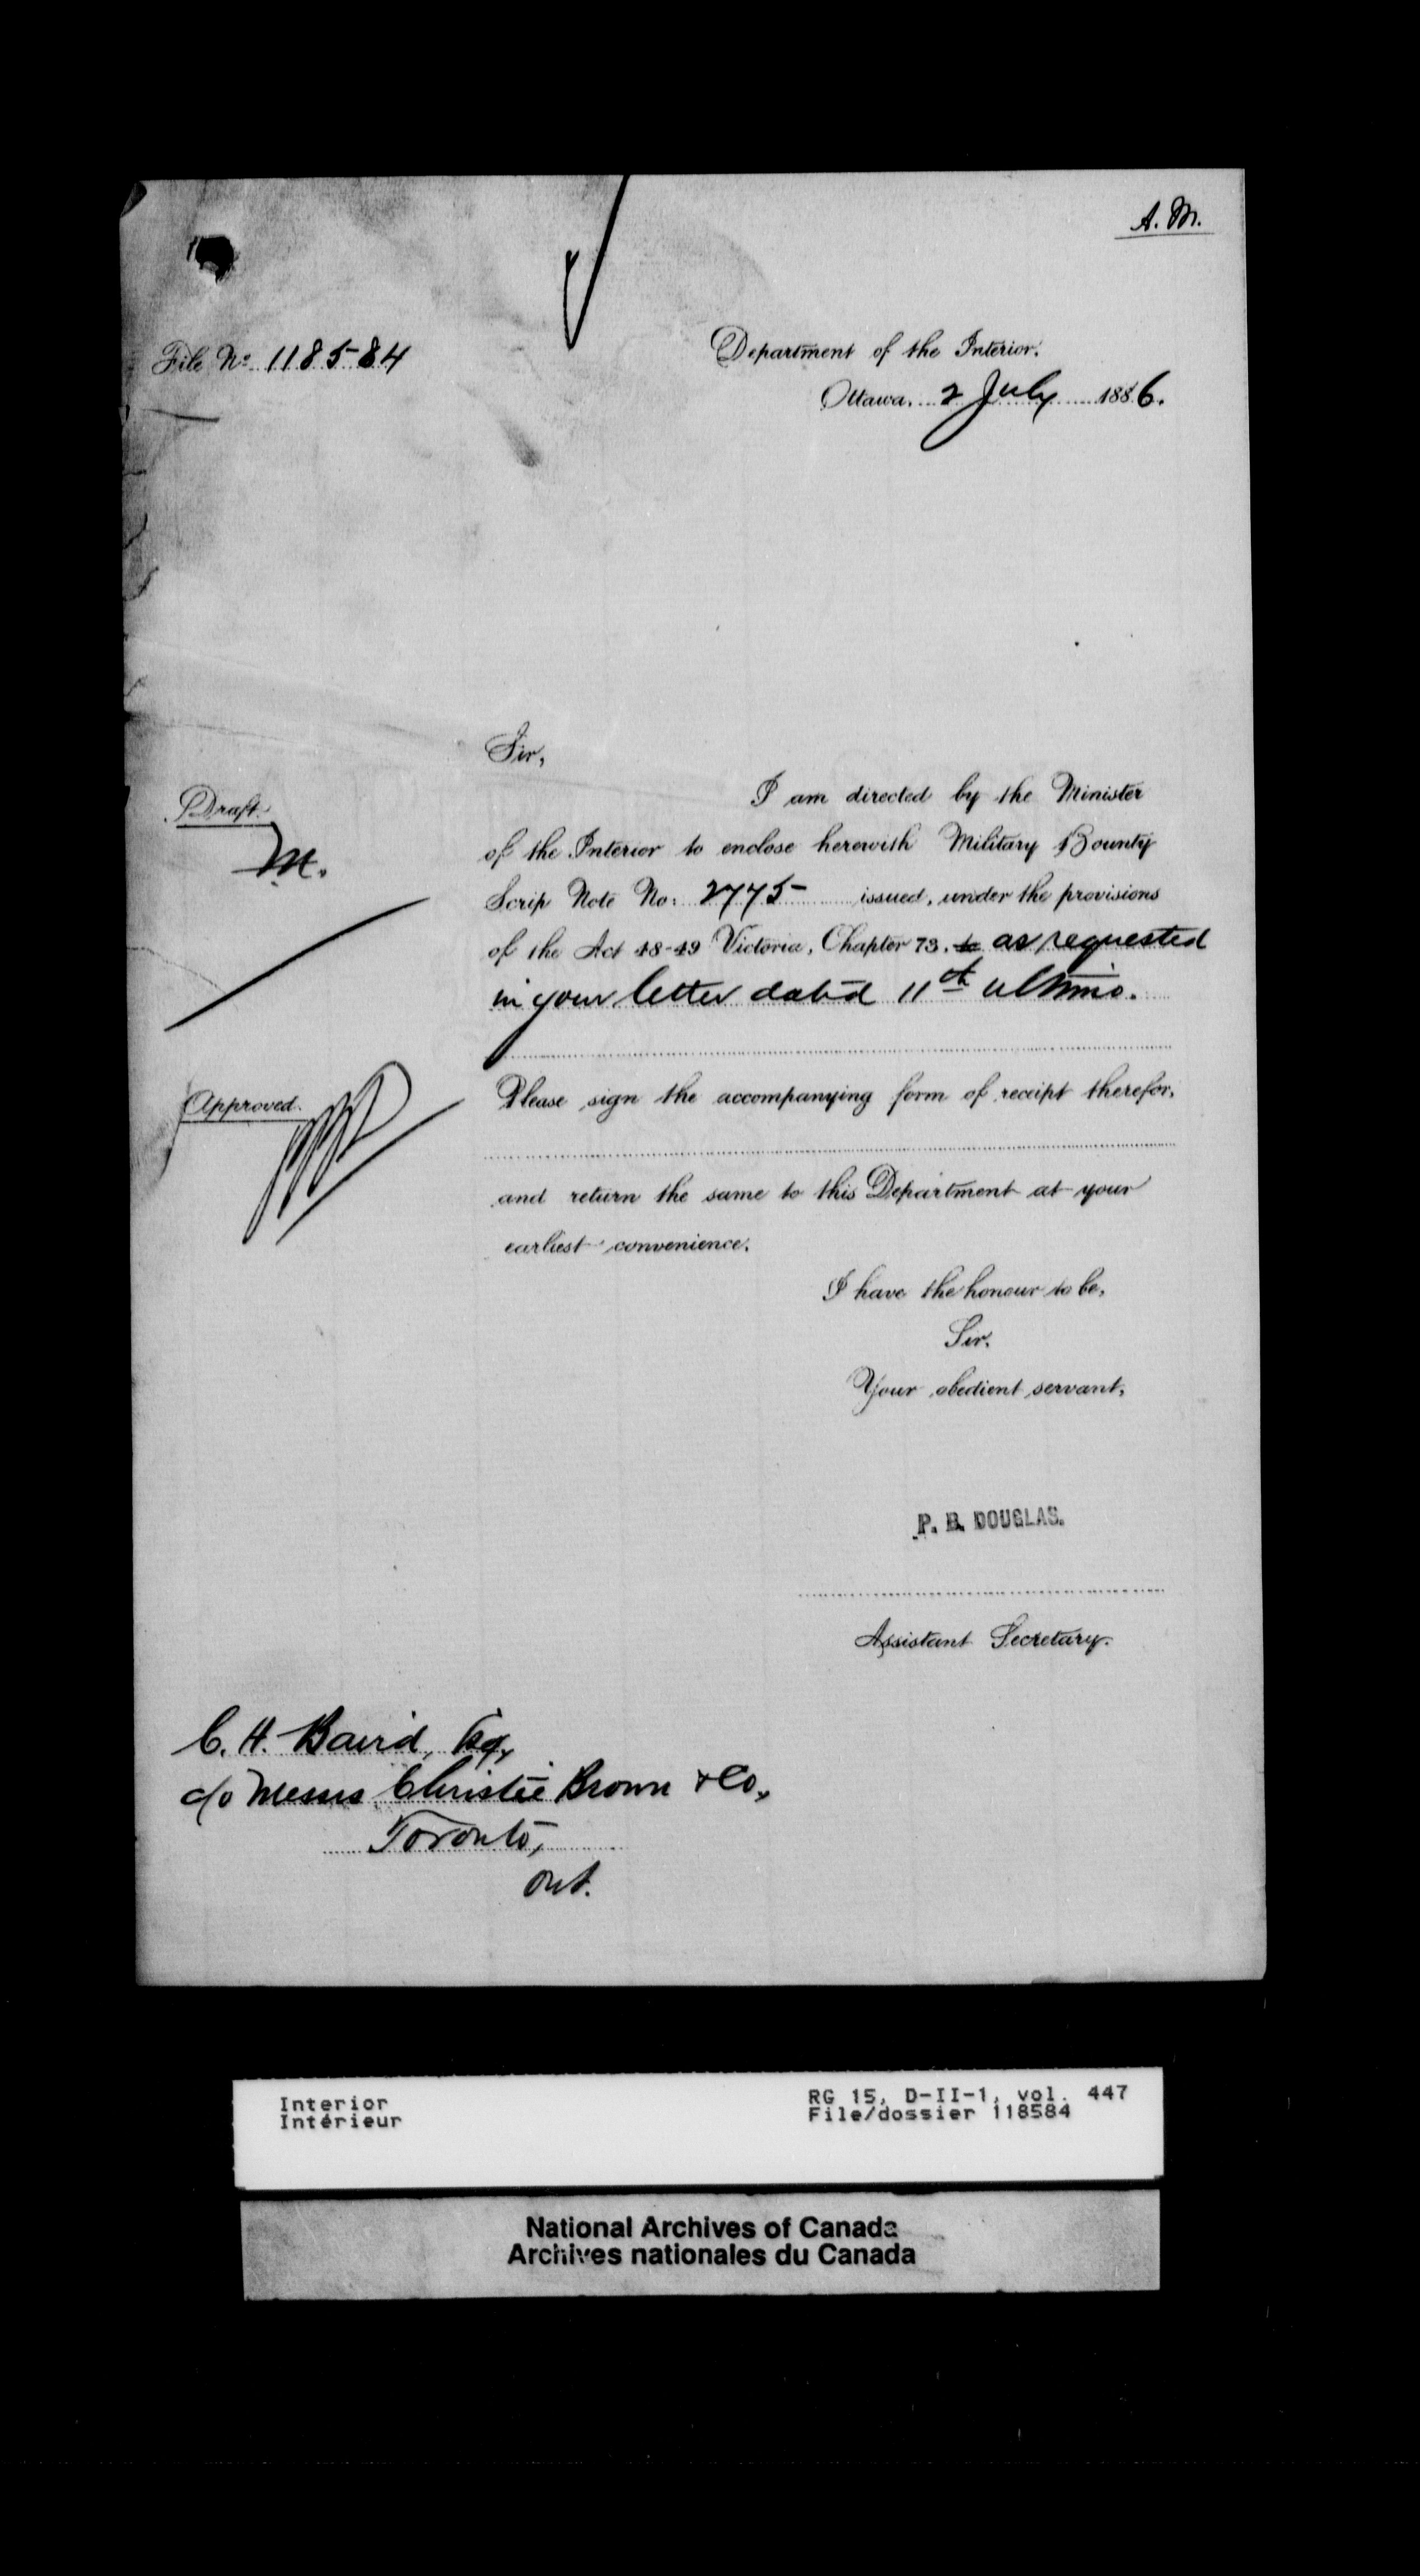 A. M.
File No. 118584
Department of the Interior.
Ottawa, 2 July 1886.
Sir,
I am directed by the Minister
Draft.
M.
of the Interior to enclose herewith Military Bounty
Scrip Note No: 2775 issued, under the provisions
of the Act 48-49 Victoria, Chapter 73, to as requested
in your letter dated 11th ultimo.
Approved.
Please sign the accompanying form of receipt therefor,
and return the same to this Department at your
earliest convenience.
I have the honour to be,
Sir,
Your obedient servant,
P. B. DOUGLAS.
Assistant Secretary.
C. H. Baird, Esq,
c/o Messrs Christie Brown & Co,
Toronto,
Ont.
Interior
Intérieur
RG 15, D-II-1, vol. 447
File/dossier 118584
National Archives of Canada
Archives nationales du Canada